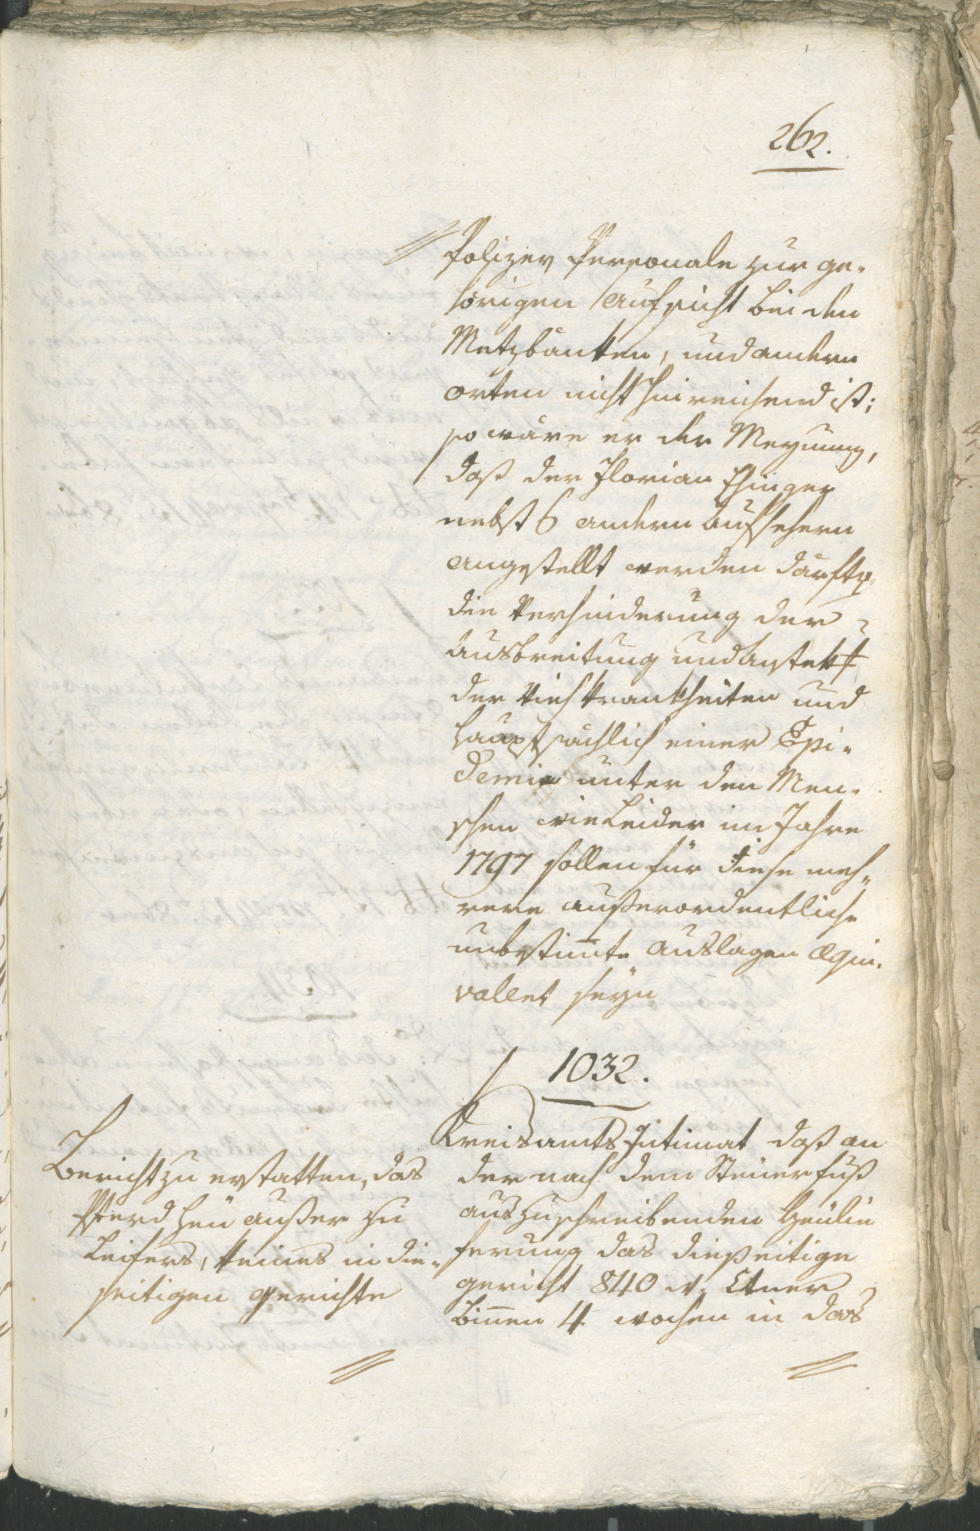 262.
Polizey Personale zur ge-
hörigen Aufsicht bei den
Metzbänken, und andern
orten nicht hinreichend ist;
so wäre er der Meynung,
daß der Florian Ehinger
nebst 6 andern Aufsehern
angestellt werden därfte,
die Verhinderung der
Ausbreitung und
der Viehkrankheiten und
hauptsächlich einer Epi-
demie unter den Men-
schen wie Leider im Jahre
1797 sollen für diese meh-
rere außerordentliche
unbestimte Auslagen Equi-
vallet seyn
1032.
Kreisamts Intimat daß an
der nach dem Steuerfuß
auszuschreibenden Heulie
ferung das dießeitige
gericht 840 Ctner
binnen 4 wochen in das
Bericht zu erstatten, das
Pferd heu außer zu
Leifers, keines in die-
seitigen gerichte